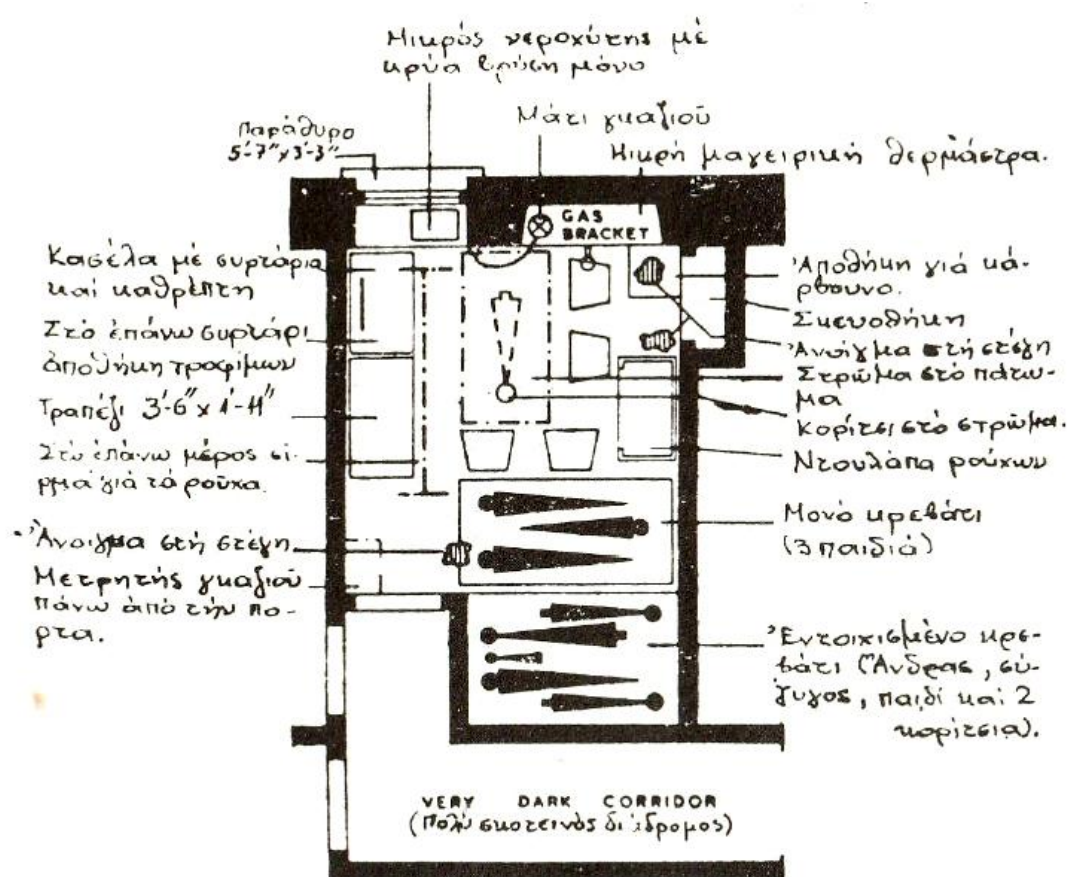 Μικρός νεροχύτης μέ
κρύα βρύση μόνο
Μάτι γκαζιοῦ
Παράθυρο
5'-7" x 3'-3"
Μικρή μαγειρική θερμάστρα.
GAS
BRACKET
Κασέλα μέ συρτάρια
καί καθρέπτη
Στό ἐπάνω συρτάρι
ἀποθήκη τροφίμων
Τραπέζι 3'-6" x 1'-11"
Στό ἐπάνω μέρος σί-
ρμα γιά τά ροῦχα.
Ἄνοιγμα στή στέγη
Μετρητής γκαζιοῦ
πάνω ἀπό τήν πό-
ρτα.
Ἀποθήκη γιά κά-
ρβουνο.
Σκευοθήκη
Ἄνοιγμα στή στέγη
Στρῶμα στό πάτω-
μα
Κορίτσι στό στρῶμα.
Ντουλάπα ρούχων
Μονό κρεβάτι
(3 παιδιά)
Ἐντοιχισμένο κρε-
βάτι (Ἄνδρας, σύ-
ζυγος, παιδί καί 2
κορίτσια).
VERY DARK CORRIDOR
(Πολύ σκοτεινός διάδρομος)